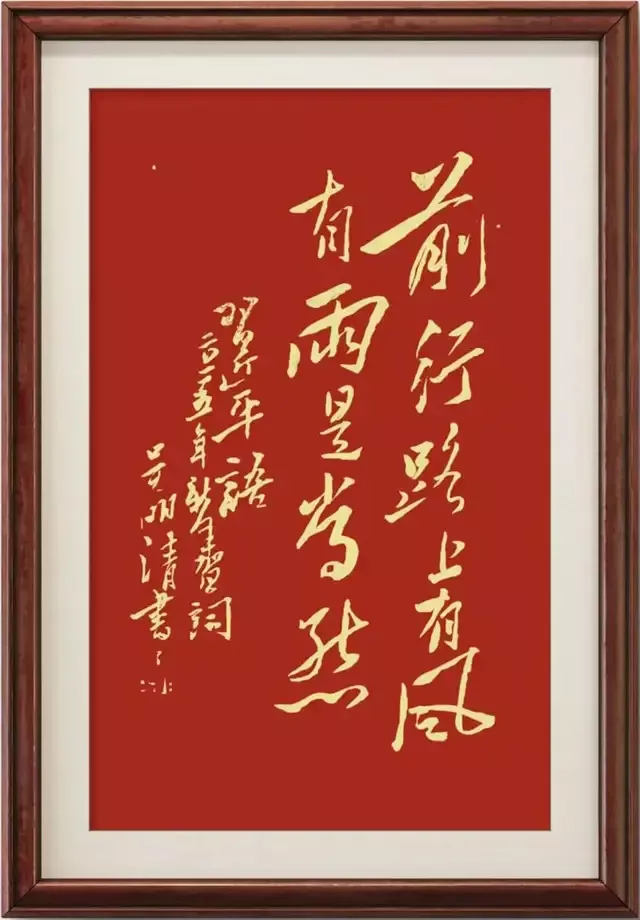 前行路上有风
有雨是常態
習近平語
二〇二五年新年賀詞
吴明清書